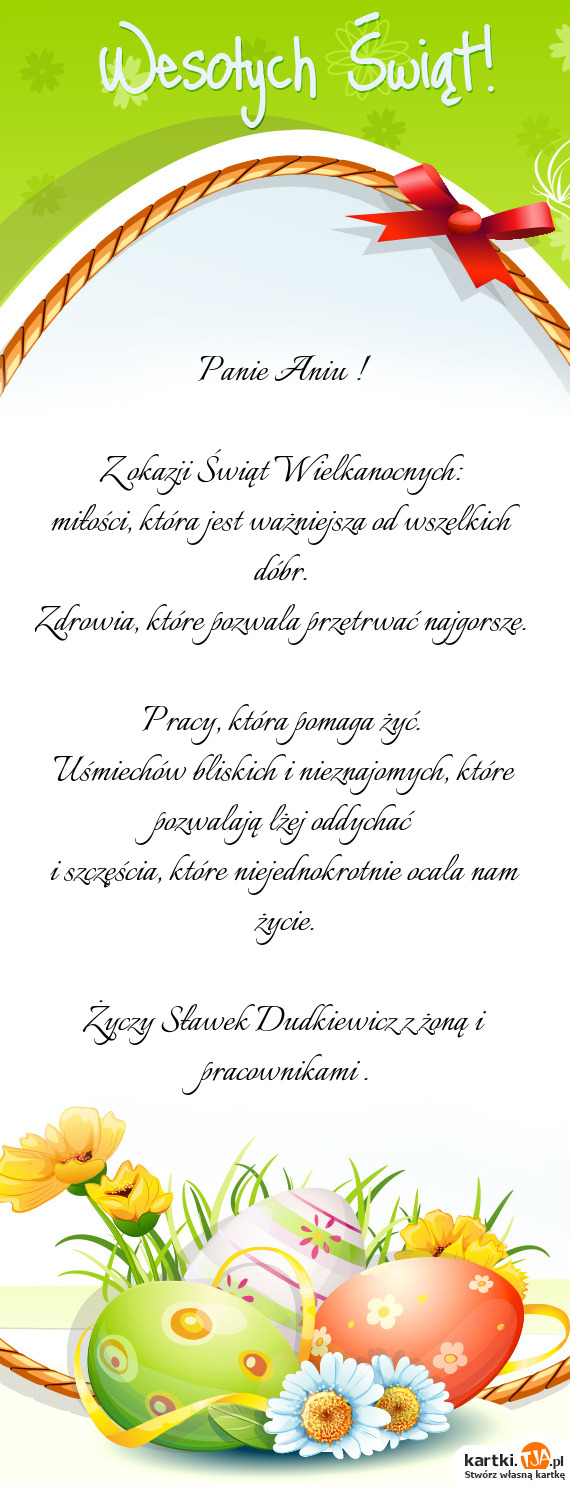 Wesołych Świąt!
Panie Aniu !
Z okazji Świąt Wielkanocnych:
miłości, która jest ważniejsza od wszelkich
dóbr.
Zdrowia, które pozwala przetrwać najgorsze.
Pracy, która pomaga żyć.
Uśmiechów bliskich i nieznajomych, które
pozwalają lżej oddychać
i szczęścia, które niejednokrotnie ocala nam
życie.
Życzy Sławek Dudkiewicz z żoną i
pracownikami .
kartki.TJA.pl
Stwórz własną kartkę